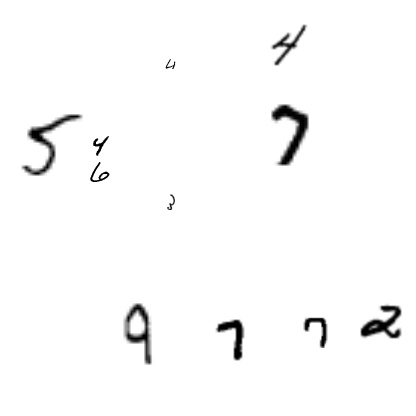 4
4
5 4 7
6
3
9 7 7 2